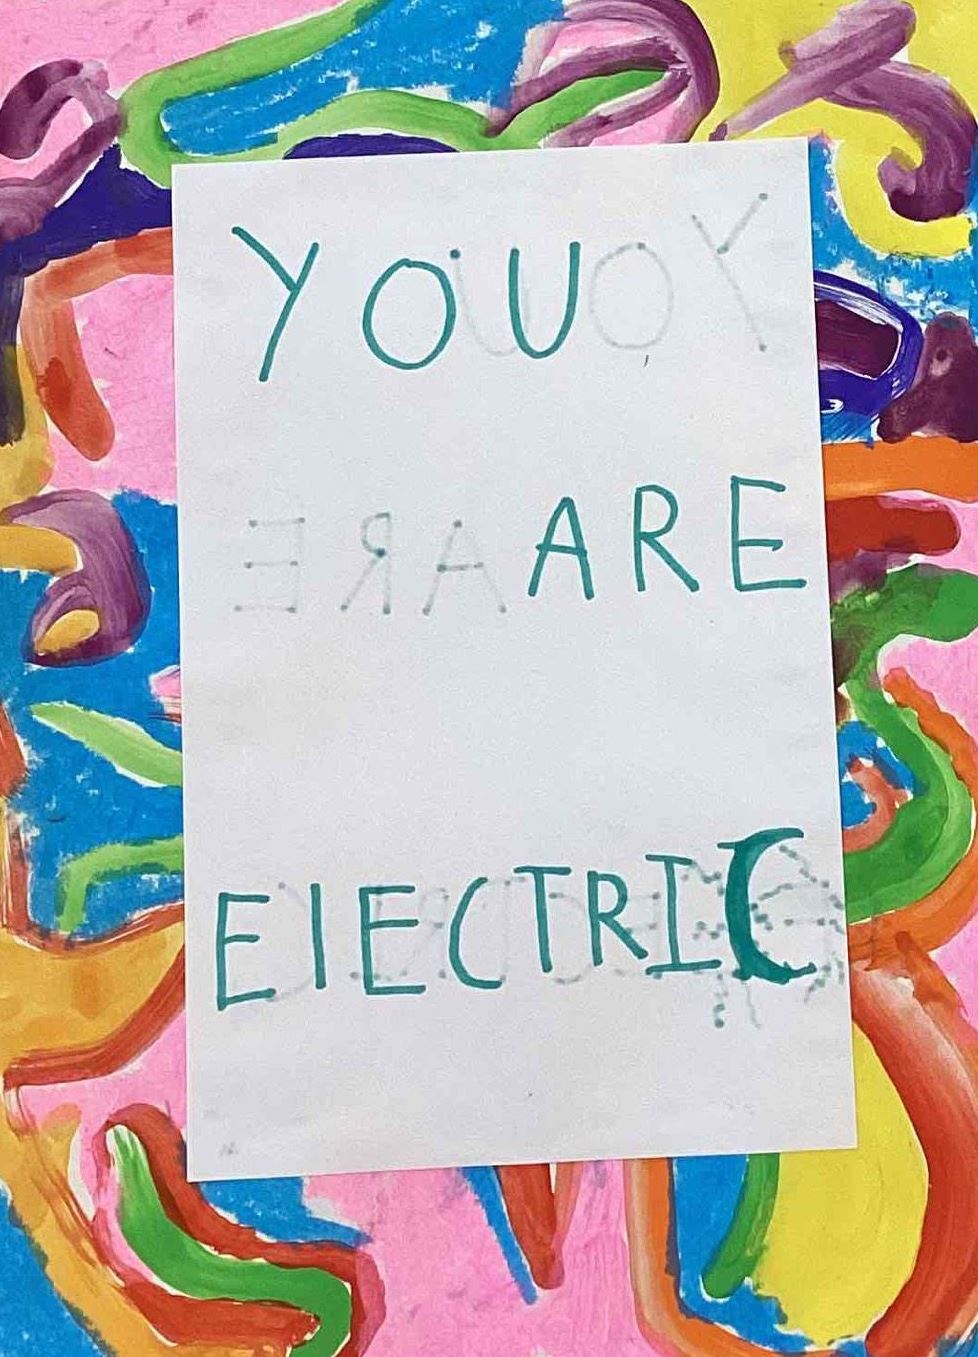 YOU
ARE
ElECTRIC